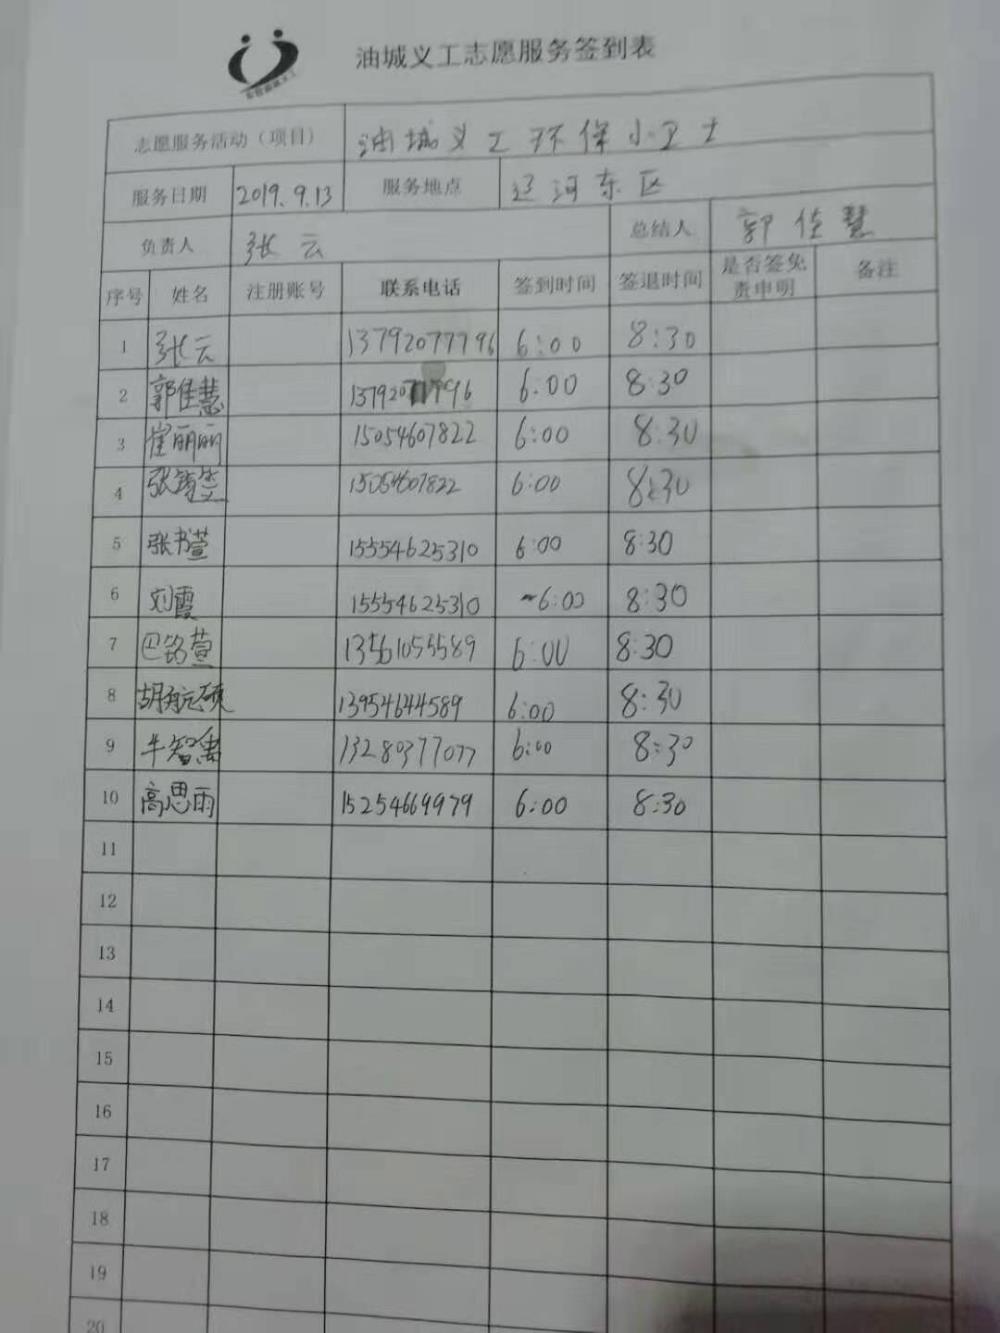 油城义工志愿服务签到表
志愿服务活动（项目） 油城义工环保小卫士
服务日期 2019.9.13 服务地点 辽河东区
负责人 张云 总结人 郭佳慧
序号 姓名 注册账号 联系电话 签到时间 签退时间 是否签免责申明 备注
1 张云 13792077796 6:00 8:30
2 郭佳慧 13792077796 6:00 8:30
3 崔丽丽 15054607822 6:00 8:30
4 15054607822 6:00 8:30
5 张书萱 15554625310 6:00 8:30
6 刘霞 15554625310 ~6:00 8:30
7 巴铭萱 13561055589 6:00 8:30
8 胡航硕 13954644589 6:00 8:30
9 牛智禹 13280377077 6:00 8:30
10 高思雨 15254669979 6:00 8:30
11
12
13
14
15
16
17
18
19
20